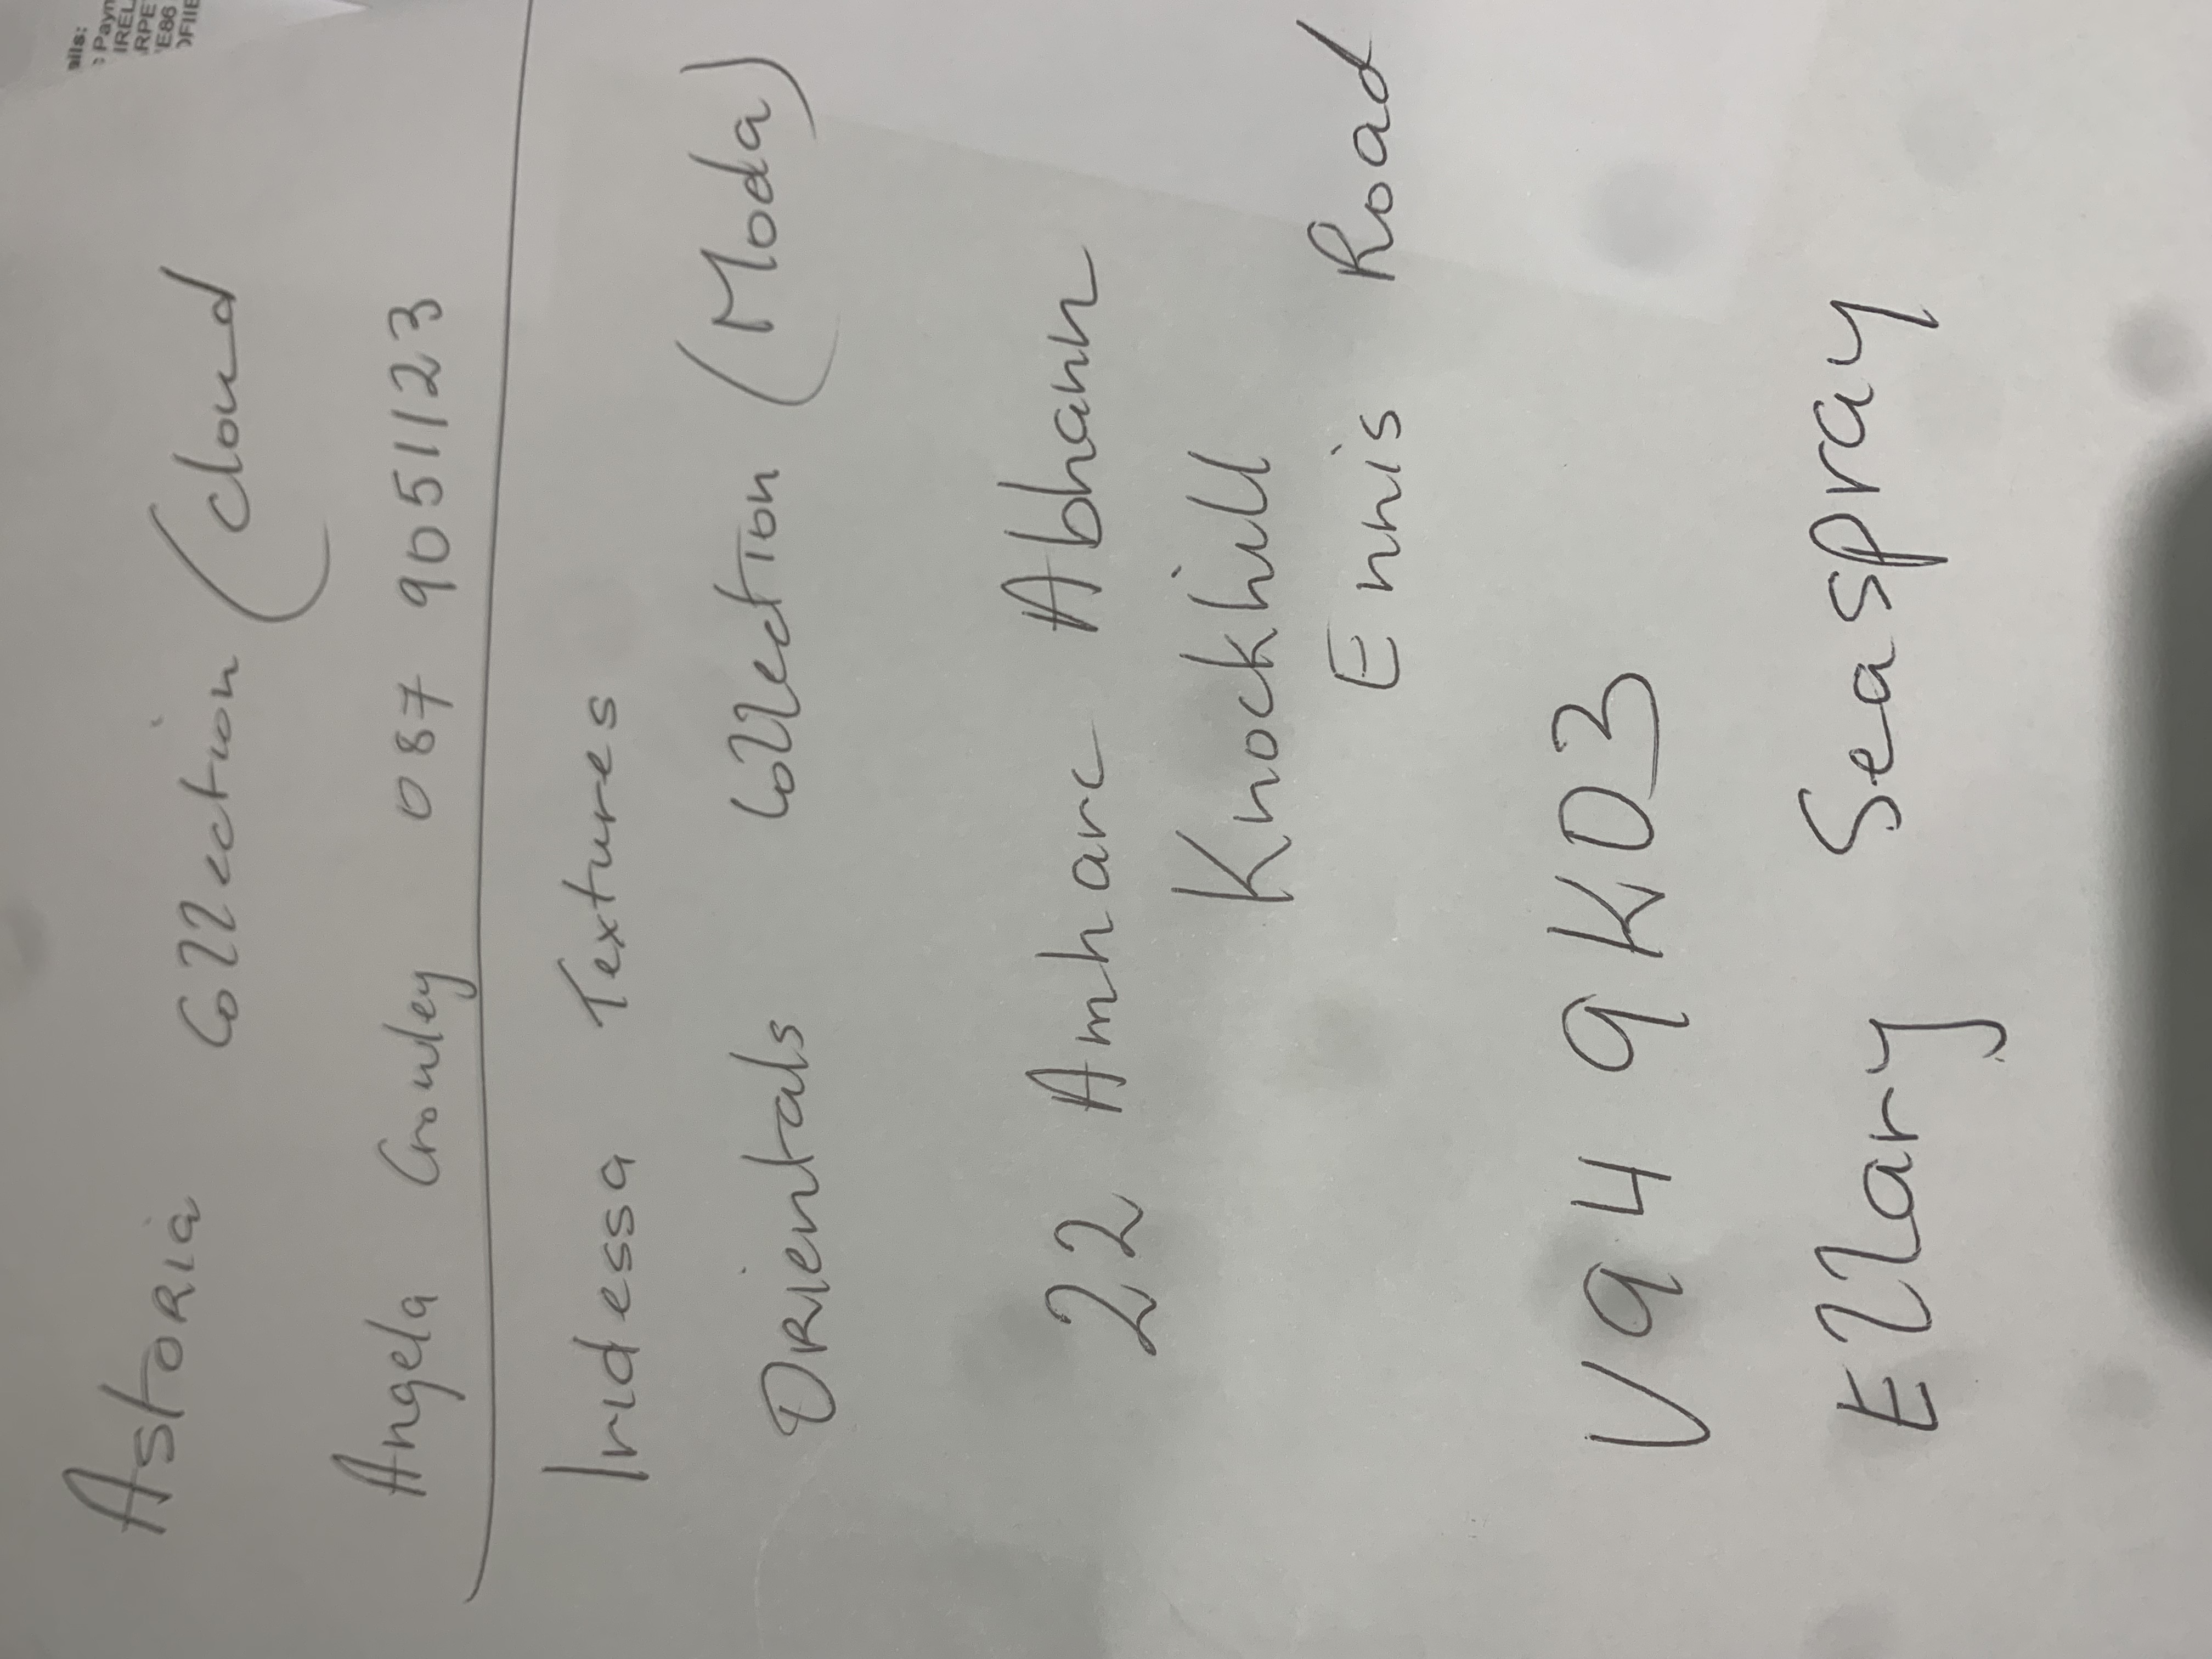 ails:
Payn
IREL
RPE
E86
OFIIE
Astoria Collection (Cloud
Angela Crowley 087 9051123
Iridessa Textures
Orientals Collection (Moda)
22 Amharc Abhann
Knockhill
Ennis Road
V94 9KD3
Ellary Seaspray